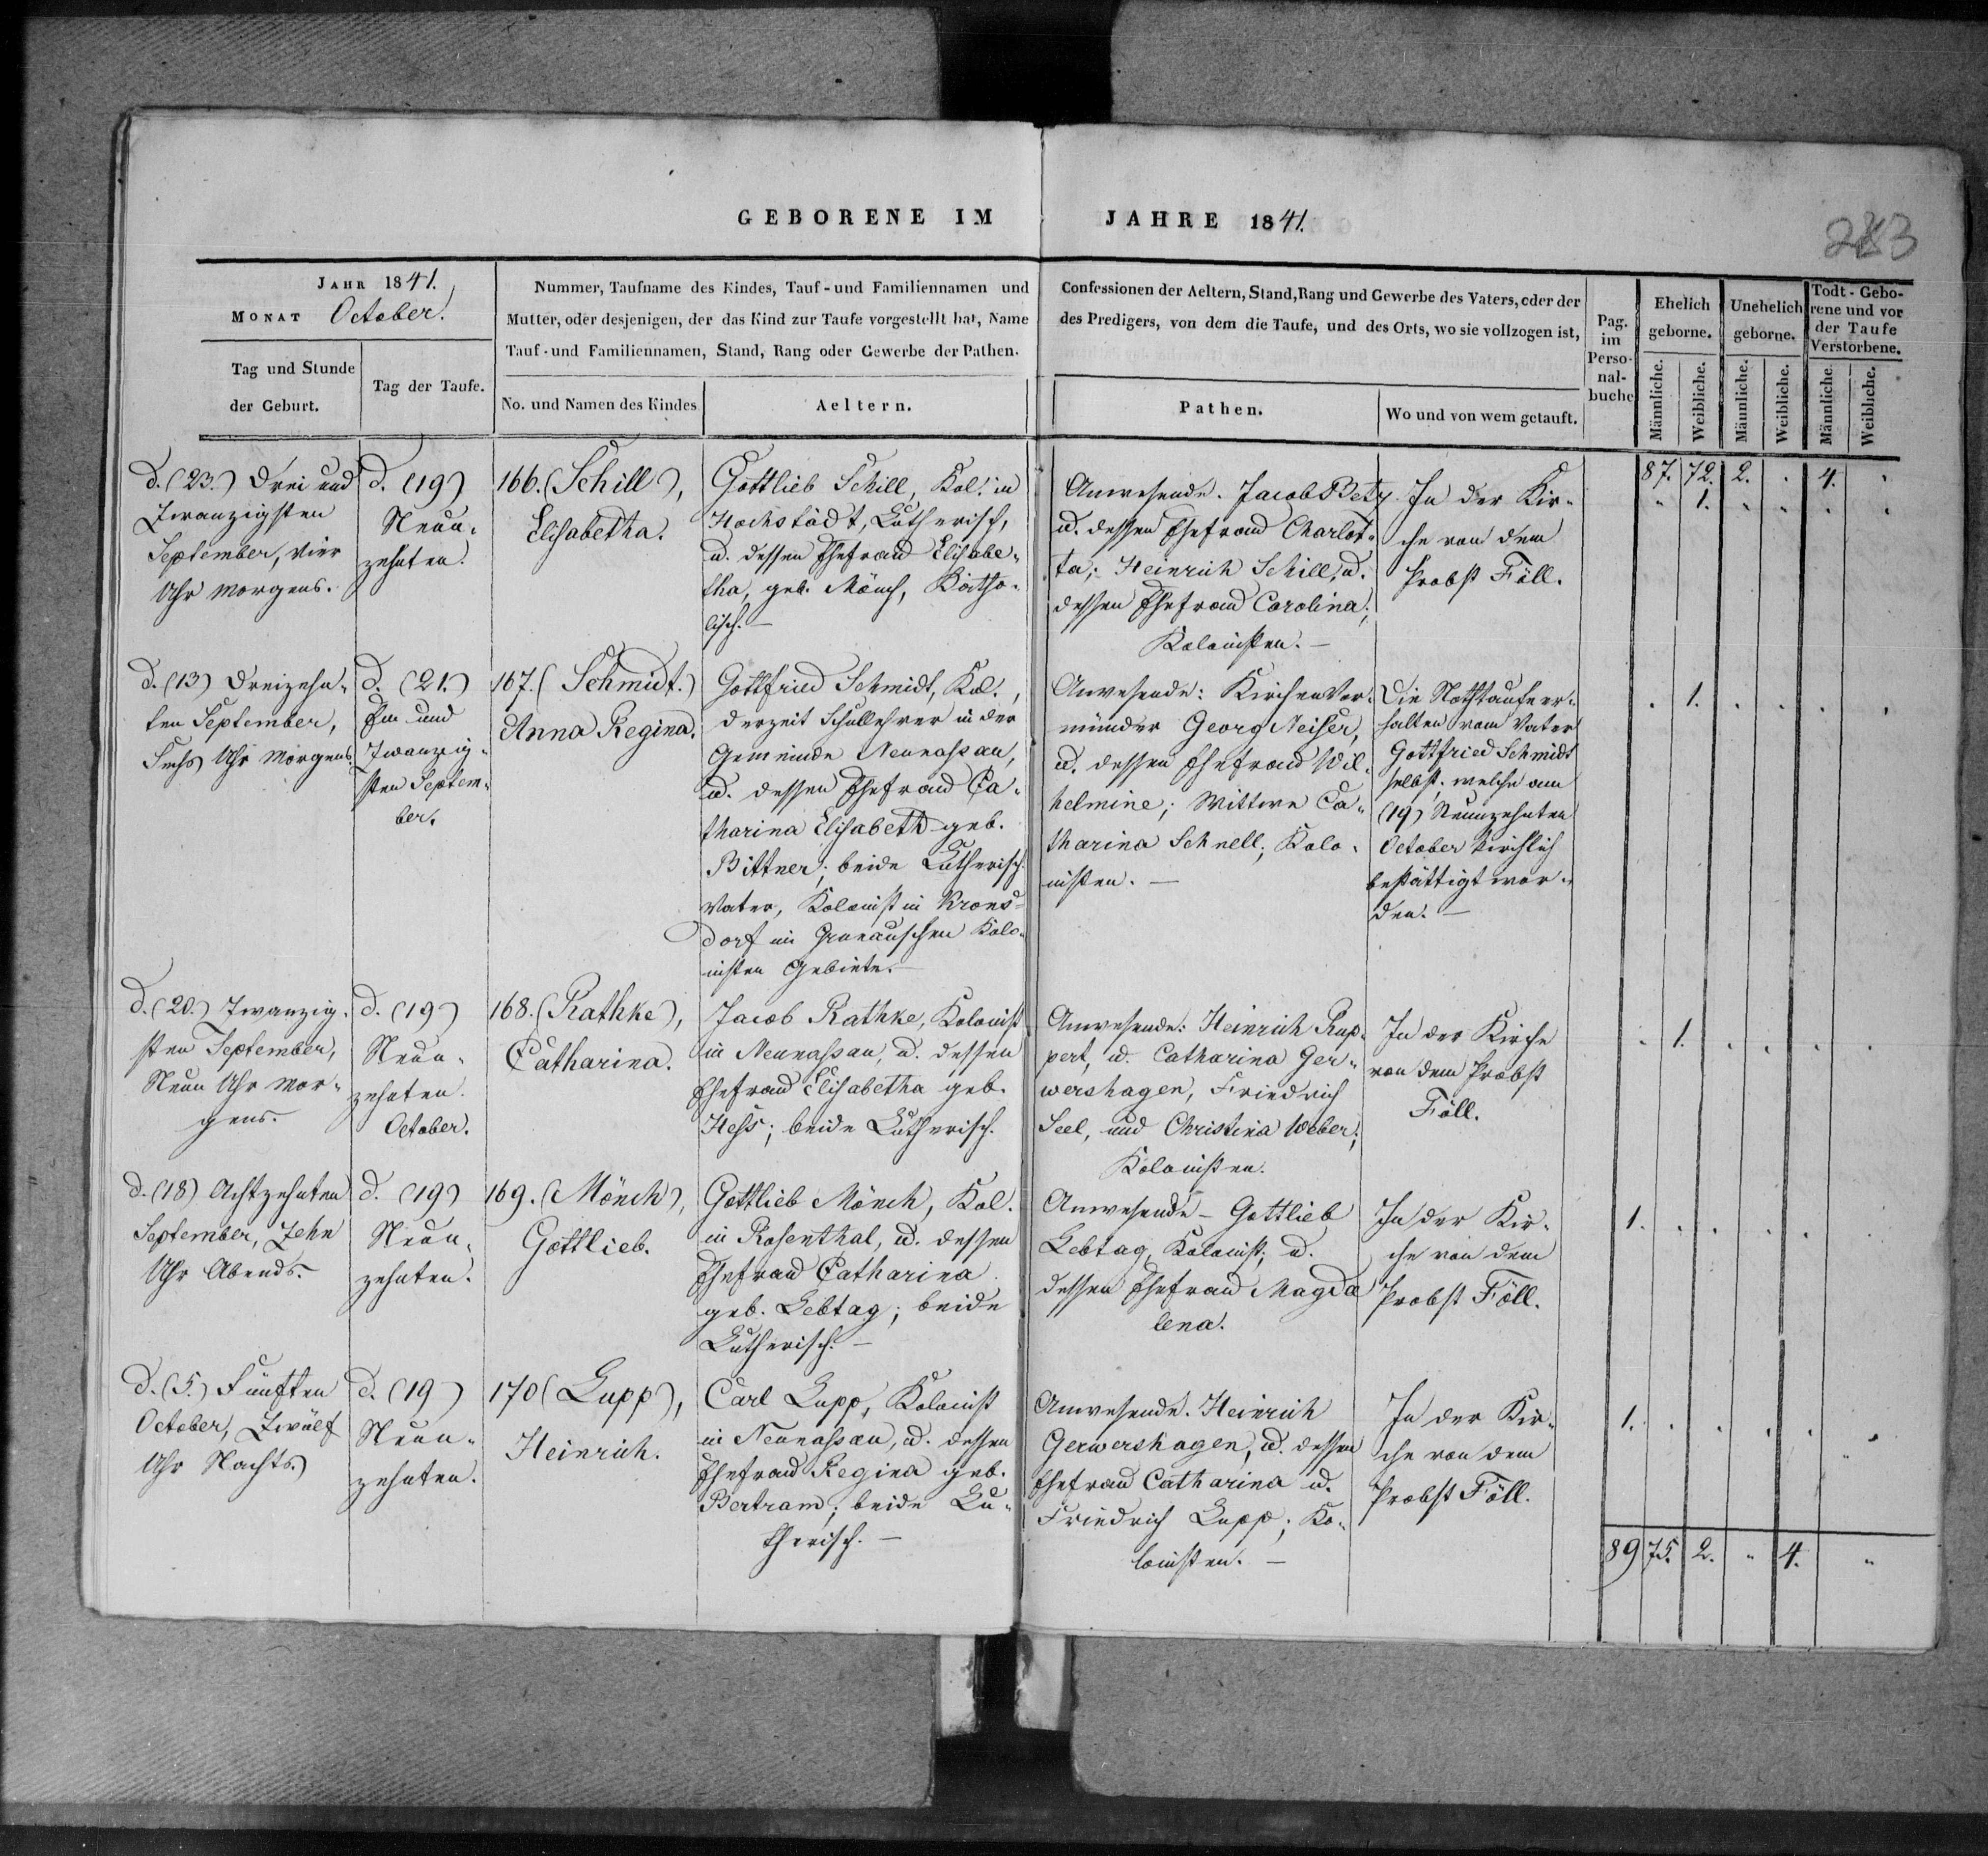 GEBORENE IM JAHRE 1841.
283
JAHR 1841.
MONAT October.
Tag und Stunde
der Geburt.
Tag der Taufe.
Nummer, Taufname des Kindes, Tauf- und Familiennamen und
Mutter, oder desjenigen, der das Kind zur Taufe vorgestellt hat, Name
Tauf- und Familiennamen, Stand, Rang oder Gewerbe der Pathen.
No. und Namen des Kindes
Aeltern.
Confessionen der Aeltern, Stand, Rang und Gewerbe des Vaters, oder der
des Predigers, von dem die Taufe, und des Orts, wo sie vollzogen ist,
Pathen.
Wo und von wem getauft.
Pag.
im
Perso-
nal-
buche
Ehelich
geborne.
Unehelich
geborne.
Todt-Gebo-
rene und vor
der Taufe
Verstorbene.
Männliche.
Weibliche.
Männliche.
Weibliche.
Männliche.
Weibliche.
87. 72. 2. . 4. .
d. (23.) Drei und
Zwanzigsten
September, vier
Uhr morgens.
d. (19)
Neun-
zehnten.
166. (Schill),
Elisabetha.
Gottlieb Schill, Kol. in
Hochstädt, Lutherisch,
u. dessen Ehefrau Elisabe-
tha, geb. Mönch, Katho-
lisch. —
Anwesende. Jacob Betz
u. dessen Ehefrau Charlot-
ta; Heinrich Schill, u.
dessen Ehefrau Carolina;
Kolonisten. —
In der Kir-
che von dem
Probst Föll.
" 1. . . . .
d. (13) Dreizehn-
ten September,
Sechs Uhr Morgens.
d. (21.)
Ein und
Zwanzig-
sten Septem-
ber.
167. (Schmidt.)
Anna Regina.
Gottfried Schmidt, Kol.,
derzeit Schullehrer in der
Gemeinde Neunassau,
u. dessen Ehefrau Ca-
tharina Elisabeth geb.
Bittner; beide Lutherisch.
Vater, Kolonist in Krons-
dorf im Grunauschen Kolo-
nisten Gebiete. —
Anwesende: Kirchenvor-
münder Georg Neiser,
u. dessen Ehefrau Wil-
helmine; Wittwe Ca-
tharina Schnell; Kolo-
nisten. —
Die Nothtaufe er-
halten vom Vater
Gottfried Schmidt
selbst, welche am
(19) Neunzehnten
October kirchlich
bestättigt wor-
den. —
. 1. . . . .
d. (20.) Zwanzig-
sten September,
Neun Uhr mor-
gens.
d. (19)
Neun-
zehnten
October.
168. (Rathke),
Catharina.
Jacob Rathke, Kolonist
in Neunassau, u. dessen
Ehefrau Elisabetha geb.
Hess; beide Lutherisch.
Anwesende: Heinrich Rup-
pert, u. Catharina Ger-
wershagen, Friedrich
Seel, und Christina Weber;
Kolonisten.
In der Kirche
von dem Probst
Föll.
. 1. . . . .
d. (18) Achtzehnten
September, Zehn
Uhr Abends.
d. (19)
Neun-
zehnten.
169. (Mönch),
Gottlieb.
Gottlieb Mönch, Kol.
in Rosenthal, u. dessen
Ehefrau Catharina
geb. Lebtag; beide
Lutherisch. —
Anwesende – Gottlieb
Lebtag, Kolonist; u.
dessen Ehefrau Magda
lena.
In der Kir-
che von dem
Probst Föll.
1. . . . .
d. (5.) Fünften
October, Zwölf
Uhr Nachts.
d. (19)
Neun-
zehnten.
170 (Lupp),
Heinrich.
Carl Lupp, Kolonist
in Neunassau, u. dessen
Ehefrau Regina geb.
Bertram; beide Lu-
therisch. —
Anwesende. Heinrich
Gerwershagen, u. dessen
Ehefrau Catharina u.
Friedrich Lupp; Ko-
lonisten. —
In der Kir-
che von dem
Probst Föll.
1. . . . . .
89 75. 2. " 4. "